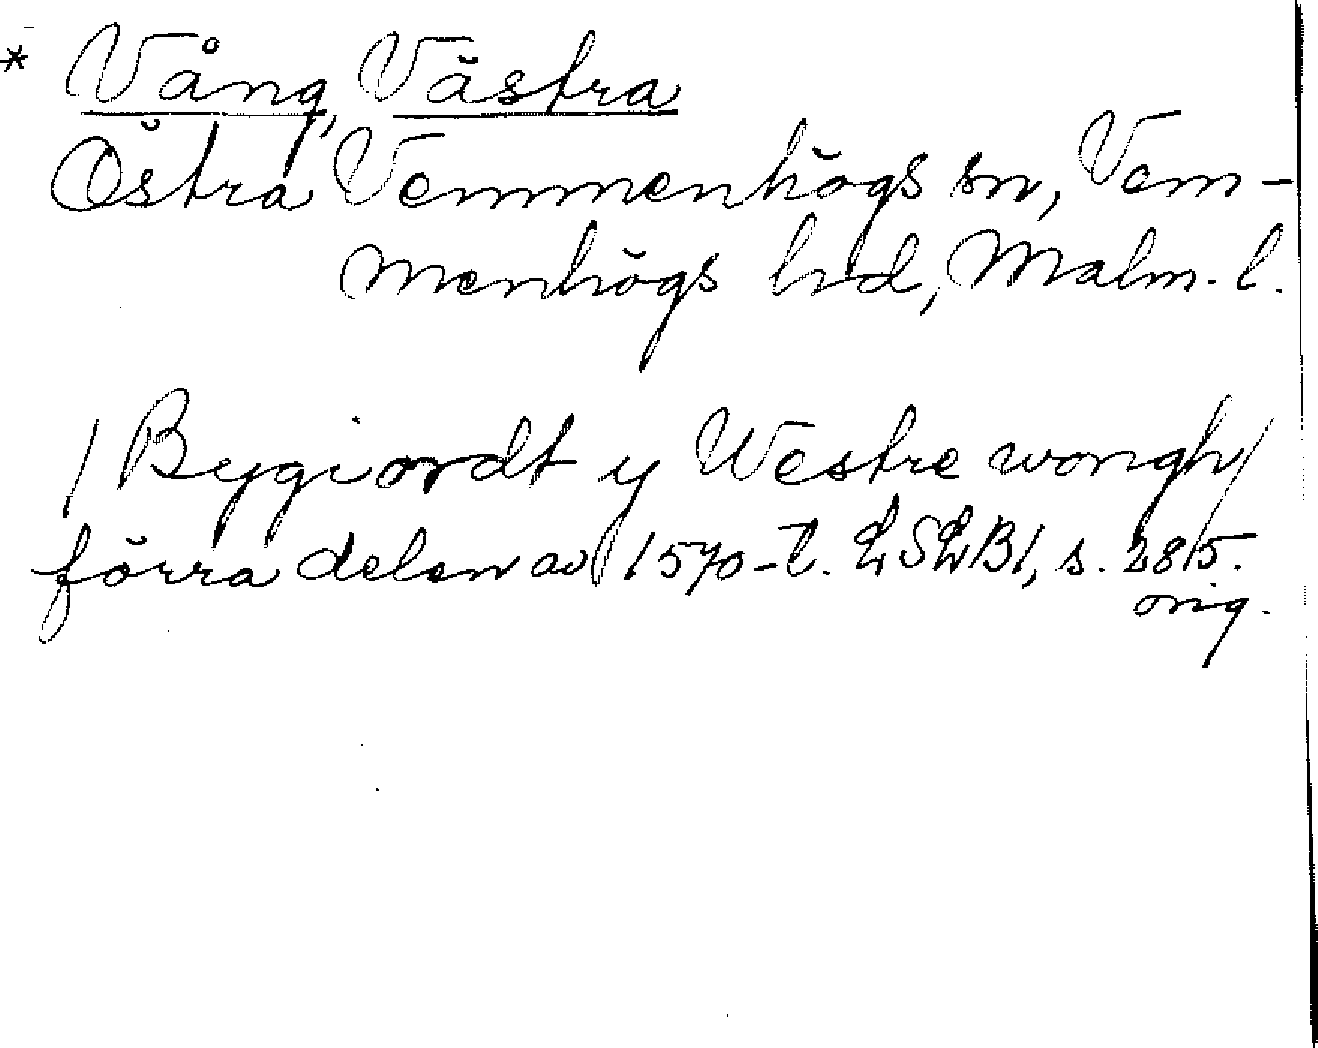 * Vång, Västra
Östra Vemmenhögs sn, Vem-
menhögs hd, Malm. l.
/ Bygiordt y Westre wongh/
förra delen av 1570-t. LSLB1, s. 285.
orig.